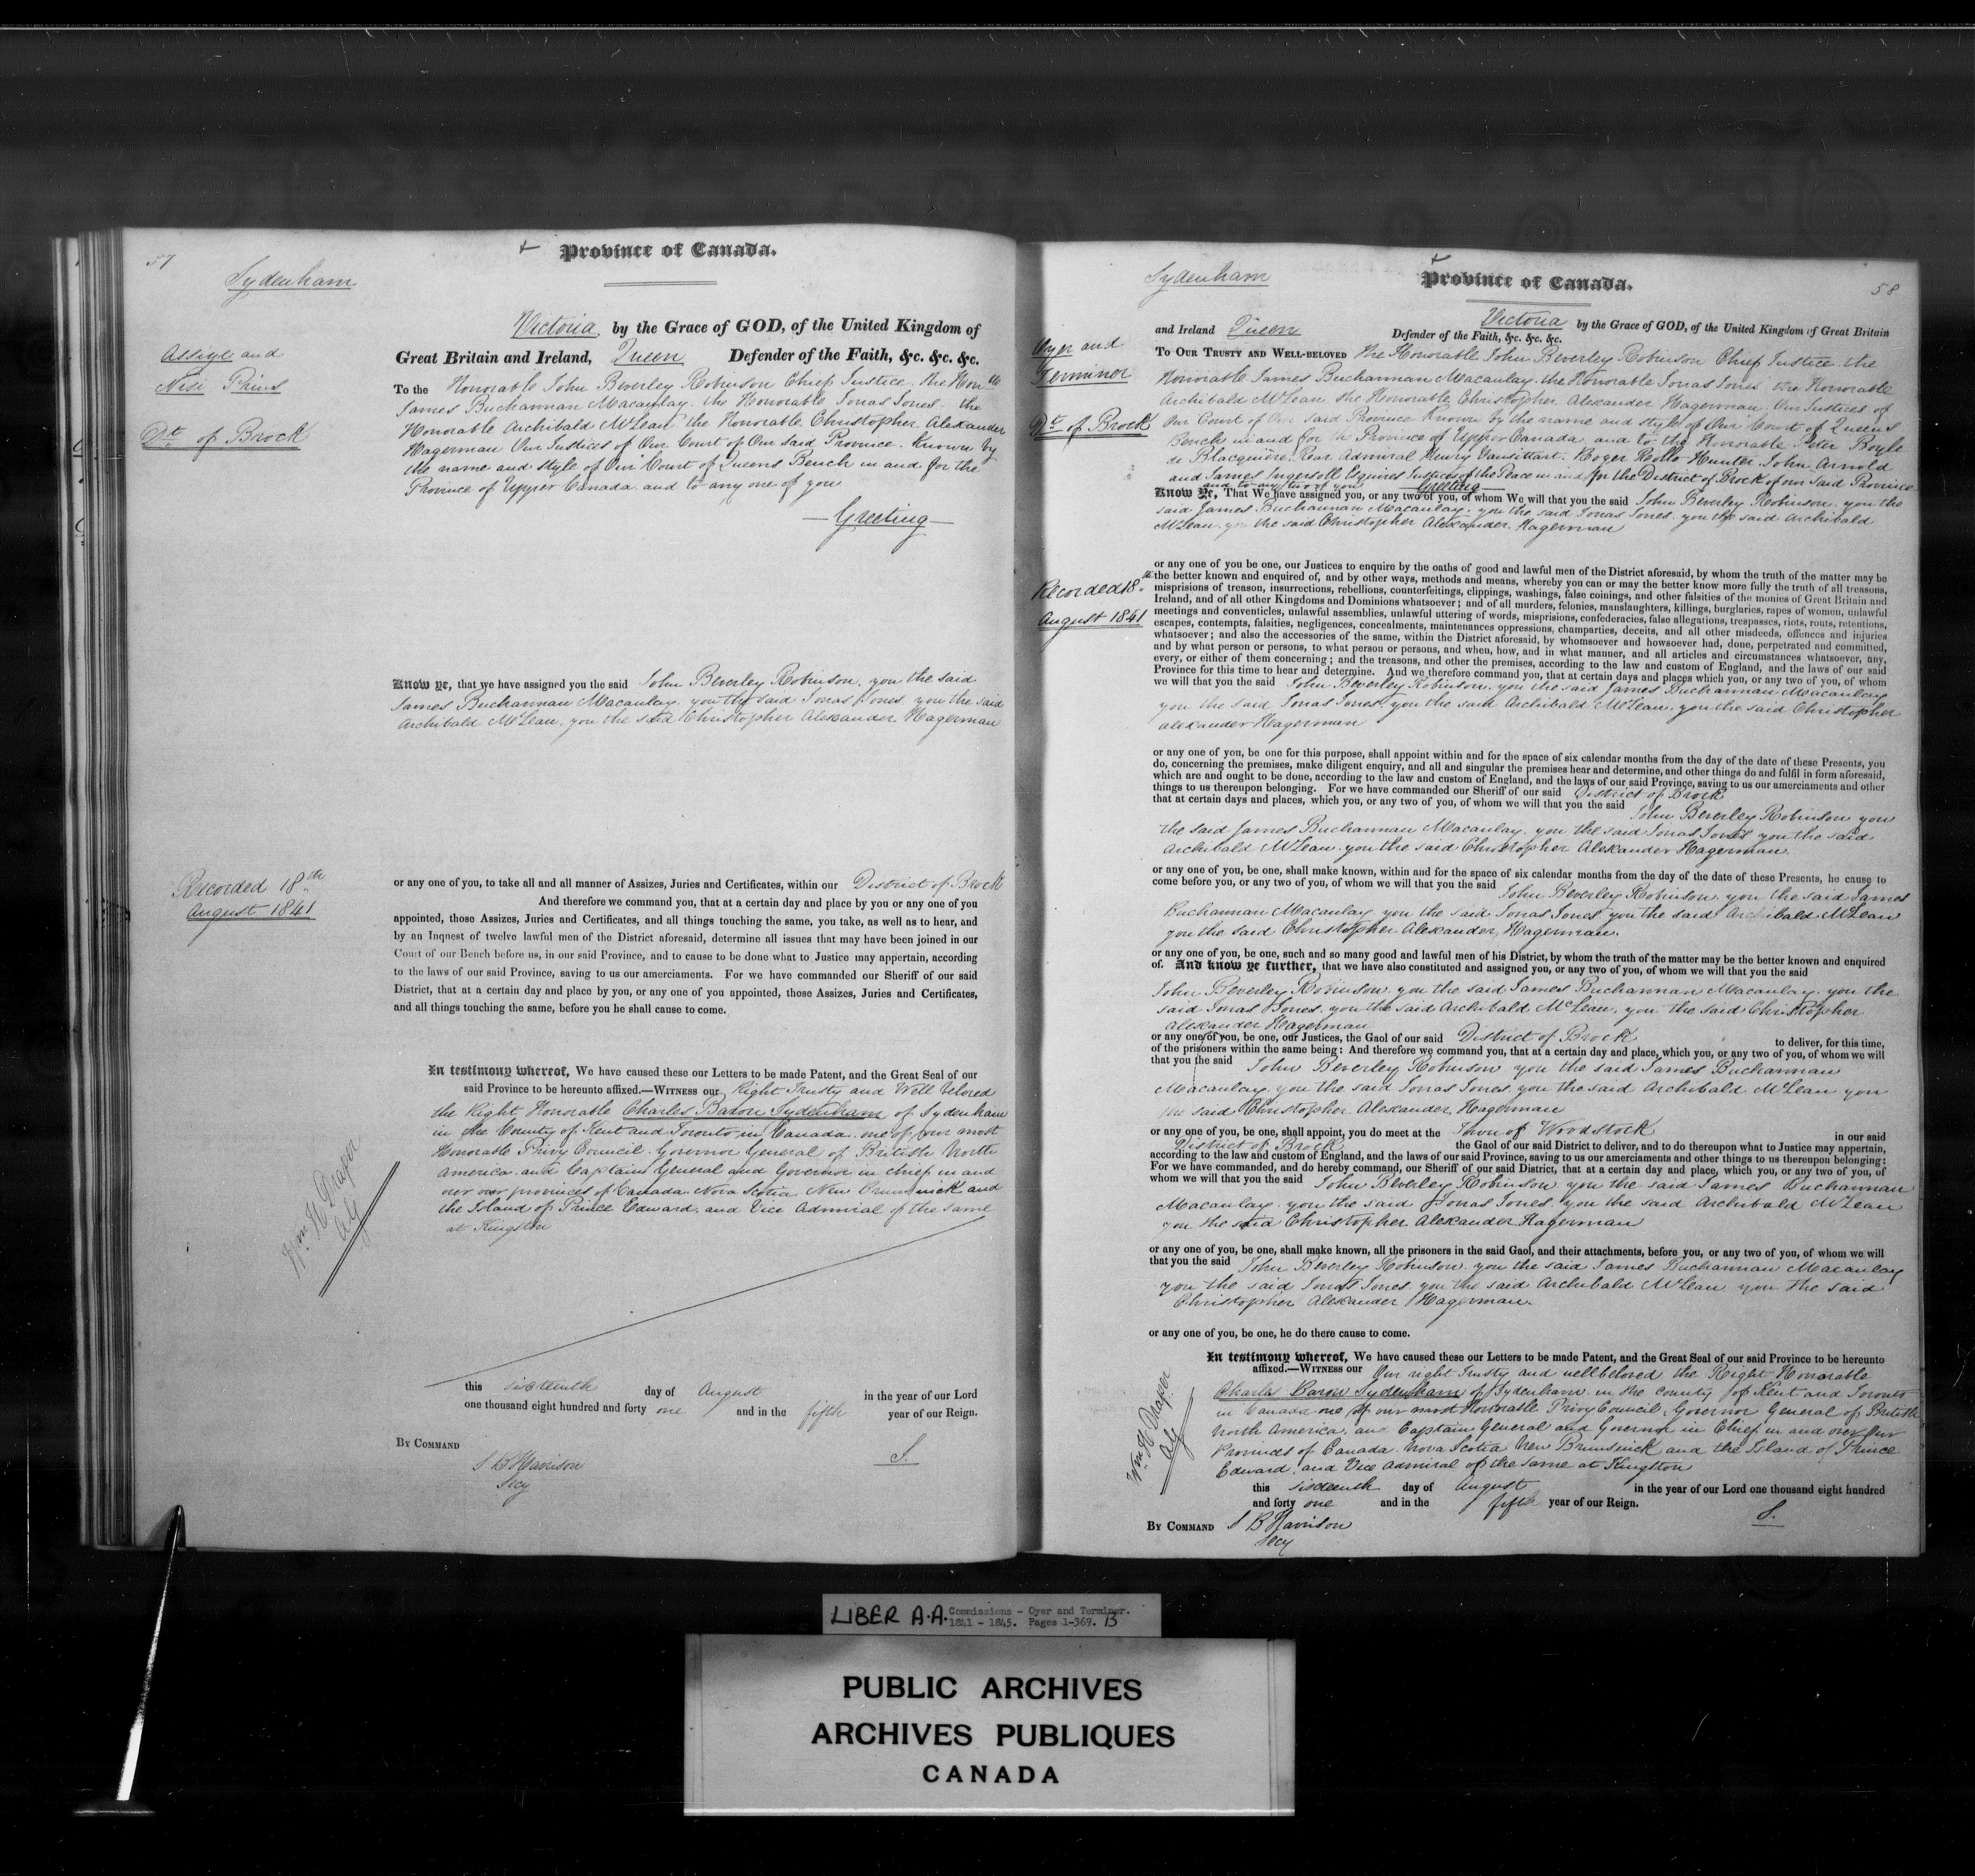 57
Sydenham
Province of Canada.
Assize and
Nisi Prius
Dt of Brock
Victoria by the Grace of GOD, of the United Kingdom of
Great Britain and Ireland, Queen Defender of the Faith, &c. &c. &c.
To the Honorable John Beverley Robinson Chief Justice. the Honble
James Buchannan Macaulay. the Honorable Jonas Jones. the
Honorable Archibald McLean. the Honorable Christopher Alexander
Hagerman Our Justices of Our Court of Our said Province. Known by
the name and style of Our Court of Queens Bench in and for the
Province of Upper Canada and to any one of you
Greeting
Know ye, that we have assigned you the said John Beverley Robinson, you the said
James Buchannan Macaulay. you the said Jonas Jones. you the said
Archibald McLean, you the said Christopher Alexander Hagerman
Recorded 18th
August 1841
or any one of you, to take all and all manner of Assizes, Juries and Certificates, within our District of Brock
And therefore we command you, that at a certain day and place by you or any one of you
appointed, those Assizes, Juries and Certificates, and all things touching the same, you take, as well as to hear, and
by an Inqnest of twelve lawful men of the District aforesaid, determine all issues that may have been joined in our
Court of our Bench before us, in our said Province, and to cause to be done what to Justice may appertain, according
to the laws of our said Province, saving to us our amerciaments. For we have commanded our Sheriff of our said
District, that at a certain day and place by you, or any one of you appointed, those Assizes, Juries and Certificates,
and all things touching the same, before you he shall cause to come.
In testimony whereof, We have caused these our Letters to be made Patent, and the Great Seal of our
said Province to be hereunto affixed.—Witness our Right Trusty and Well beloved
the Right Honorable Charles Baron Sydenham of Sydenham
in the County of Kent and Toronto in Canada. one of our most
Honorable Privy Council. Governor General of British North
America. and Captain General and Governor in chief in and
over our provinces of Canada Nova Scotia New Brunswick and
the Island of Prince Edward. and Vice Admiral of the same
at Kingston
Wm H Draper
Atty
this sixteenth day of August in the year of our Lord
one thousand eight hundred and forty one and in the fifth year of our Reign.
By Command
S B Harrison
Secy
S.
Sydenham
Province of Canada.
58
Oyer and
Terminer
Dt of Brock
Victoria by the Grace of GOD, of the United Kingdom of Great Britain
and Ireland Queen Defender of the Faith, &c. &c. &c.
To Our Trusty and Well-beloved the Honorable John Beverley Robinson Chief Justice. the
Honorable James Buchannan Macaulay. the Honorable Jonas Jones the Honorable
Archibald McLean the Honorable Christopher Alexander Hagerman. Our Justices of
Our Court of Our said Province Known by the name and style of Our Court of Queens
Bench in and for the Province of Upper Canada and to the Honorable Peter Boyle
de Blacquière. Rear Admiral Henry Vansittart. Roger Rollo Hunter John Arnold
and James Ingersoll Esquires Justices of the Peace in and for the District of Brock of our Said Province
and to any two of you Greeting
Know Ye, That We have assigned you, or any two of you, of whom We will that you the said John Beverley Robinson, you the
said James Buchannan Macaulay. you the said Jonas Jones. you the said Archibald
McLean. you the said Christopher Alexander Hagerman
Recorded 18th
August 1841
or any one of you be one, our Justices to enquire by the oaths of good and lawful men of the District aforesaid, by whom the truth of the matter may be
the better known and enquired of, and by other ways, methods and means, whereby you can or may the better know more fully the truth of all treasons,
misprisions of treason, insurrections, rebellions, counterfeitings, clippings, washings, false coinings, and other falsities of the monies of Great Britain and
Ireland, and of all other Kingdoms and Dominions whatsoever; and of all murders, felonies, manslaughters, killings, burglaries, rapes of women, unlawful
meetings and conventicles, unlawful assemblies, unlawful uttering of words, misprisions, confederacies, false allegations, trespasses, riots, routs, retentions,
escapes, contempts, falsities, negligences, concealments, maintenances oppressions, champarties, deceits, and all other misdeeds, offences and injuries
whatsoever; and also the accessories of the same, within the District aforesaid, by whomsoever and howsoever had, done, perpetrated and committed,
and by what person or persons, to what person or persons, and when, how, and in what manner, and all articles and circumstances whatsoever, any,
every, or either of them concerning; and the treasons, and other the premises, according to the law and custom of England, and the laws of our said
Province for this time to hear and determine. And we therefore command you, that at certain days and places which you, or any two of you, of whom
we will that you the said John Beverley Robinson, you the said James Buchannan Macaulay
you the said Jonas Jones, you the said Archibald McLean. you the said Christopher
Alexander Hagerman
or any one of you, be one for this purpose, shall appoint within and for the space of six calendar months from the day of the date of these Presents, you
do, concerning the premises, make diligent enquiry, and all and singular the premises hear and determine, and other things do and fulfil in form aforesaid,
which are and ought to be done, according to the law and custom of England, and the laws of our said Province, saving to us our amerciaments and other
things to us thereupon belonging. For we have commanded our Sheriff of our said District of Brock
that at certain days and places, which you, or any two of you, of whom we will that you the said John Beverley Robinson you
the said James Buchannan Macaulay. you the said Jonas Jones you the said
Archibald McLean. you the said Christopher Alexander Hagerman.
or any one of you, be one, shall make known, within and for the space of six calendar months from the day of the date of these Presents, he cause to
come before you, or any two of you, of whom we will that you the said John Beverley Robinson. you the said James
Buchannan Macaulay you the said Jonas Jones you the said Archibald McLean
you the said Christopher Alexander Hagerman.
or any one of you, be one, such and so many good and lawful men of his District, by whom the truth of the matter may be the better known and enquired
of. And know ye further, that we have also constituted and assigned you, or any two of you, of whom we will that you the said
John Beverley Robinson, you the said James Buchannan Macaulay. you the
said Jonas Jones. you the said Archibald McLean, you the said Christopher
Alexander Hagerman
or any one of you, be one, our Justices, the Gaol of our said District of Brock to deliver, for this time,
of the prisoners within the same being: And therefore we command you, that at a certain day and place, which you, or any two of you, of whom we will
that you the said John Beverley Robinson you the said James Buchannan
Macaulay you the said Jonas Jones, you the said Archibald McLean you
the said Christopher Alexander Hagerman
or any one of you, be one, shall appoint, you do meet at the Town of Woodstock in our said
District of Brock the Gaol of our said District to deliver, and to do thereupon what to Justice may appertain,
according to the law and custom of England, and the laws of our said Province, saving to us our amerciaments and other things to us thereupon belonging:
For we have commanded, and do hereby command, our Sheriff of our said District, that at a certain day and place, which you, or any two of you, of
whom we will that you the said John Beverley Robinson you the said James Buchannan
Macaulay. you the said Jonas Jones. you the said Archibald McLean
you the said Christopher Alexander Hagerman
or any one of you, be one, shall make known, all the prisoners in the said Gaol, and their attachments, before you, or any two of you, of whom we will
that you the said John Beverley Robinson. you the said James Buchannan Macaulay
you the said Jonas Jones. you the said Archibald McLean you the said
Christopher Alexander Hagerman.
or any one of you, be one, he do there cause to come.
In testimony whereof, We have caused these our Letters to be made Patent, and the Great Seal of our said Province to be hereunto
affixed.—Witness our Our right Trusty and wellbeloved the Right Honorable
Charles Baron Sydenham of Sydenham in the county of Kent and Toronto
in Canada one of our most Honorable Privy Council, Governor General of British
North America, an Captain General and Governor in Chief in and over Our
Provinces of Canada. Nova Scotia New Brunswick and the Island of Prince
Edward, and Vice Admiral of the same at Kingston
Wm H Draper
Atty
this sixteenth day of August in the year of our Lord one thousand eight hundred
and forty one and in the fifth year of our Reign.
By Command S B Harrison
Secy
S.
LIBER A.A. Commissions - Oyer and Terminer.
1841 - 1845. Pages 1-369. B
PUBLIC ARCHIVES
ARCHIVES PUBLIQUES
CANADA